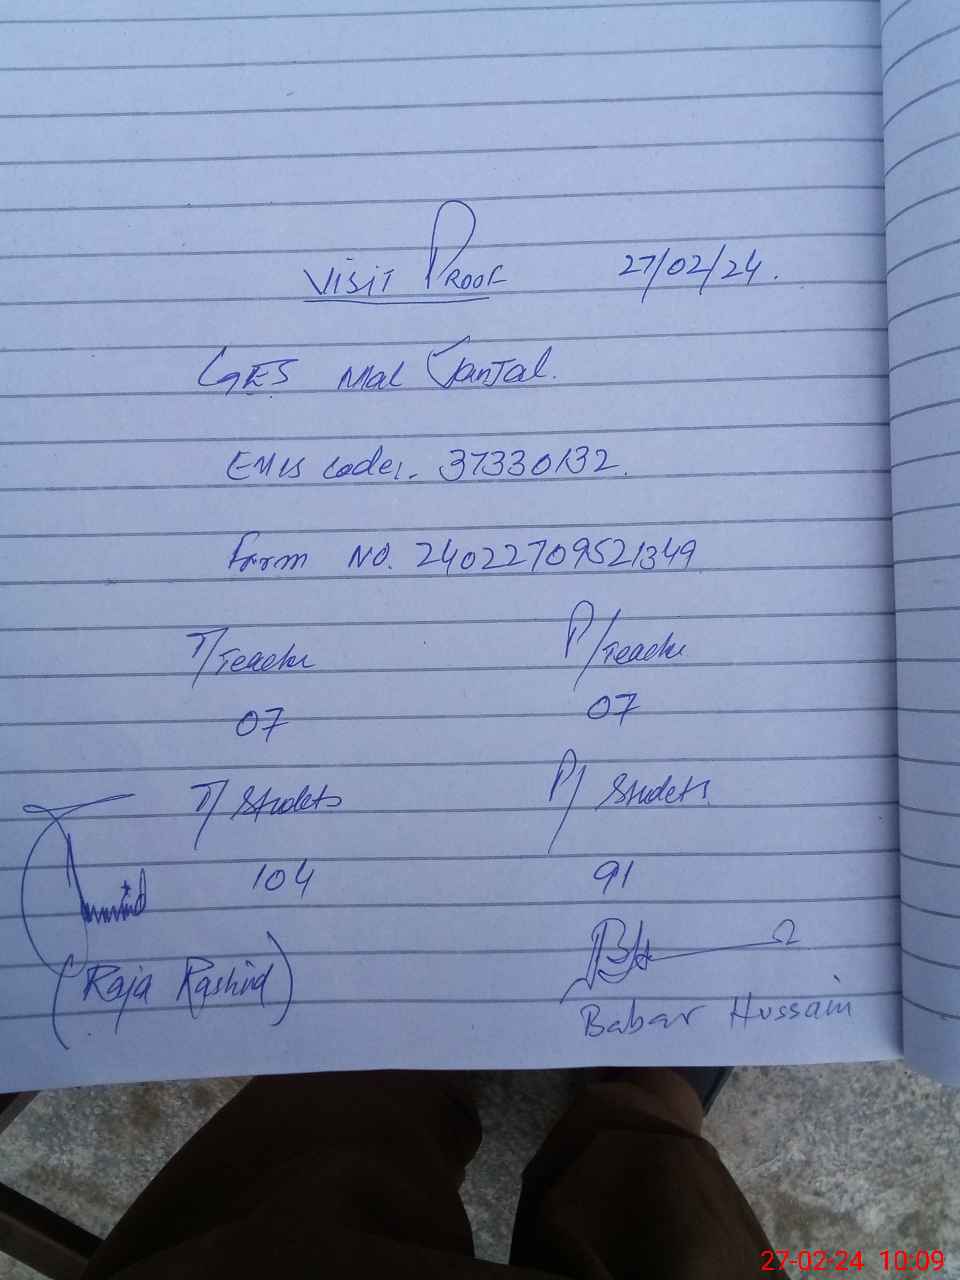 Visit Proof 27/02/24.
GES Mal Jantal.
EMIS code:. 37330132.
Form No. 24022709521349
T/Teache P/Teache
07 07
T/Studets P/Studets
104 91
(Raja Rashid)
Babar Hussain
27-02-24 10:09